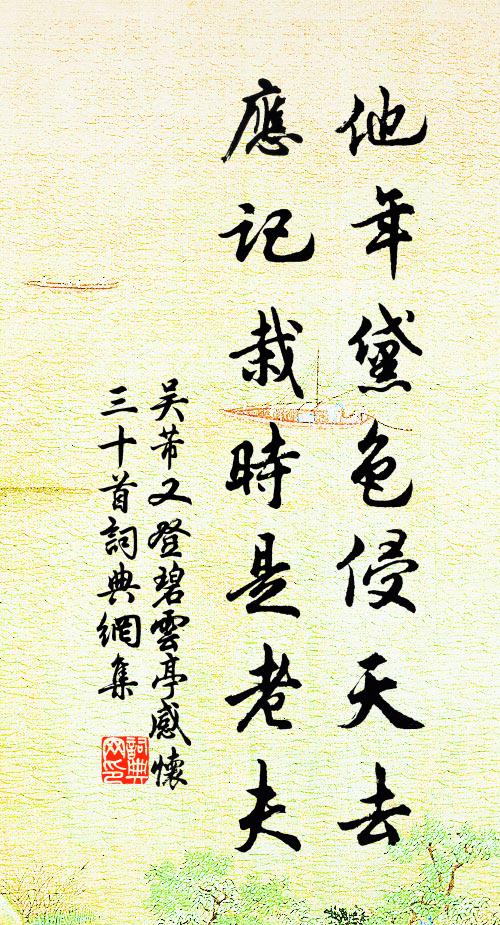 他年黛色侵天去
應記栽時是老夫
吳芾又登碧雲亭感懷
三十首詞典網集
詞典
網印